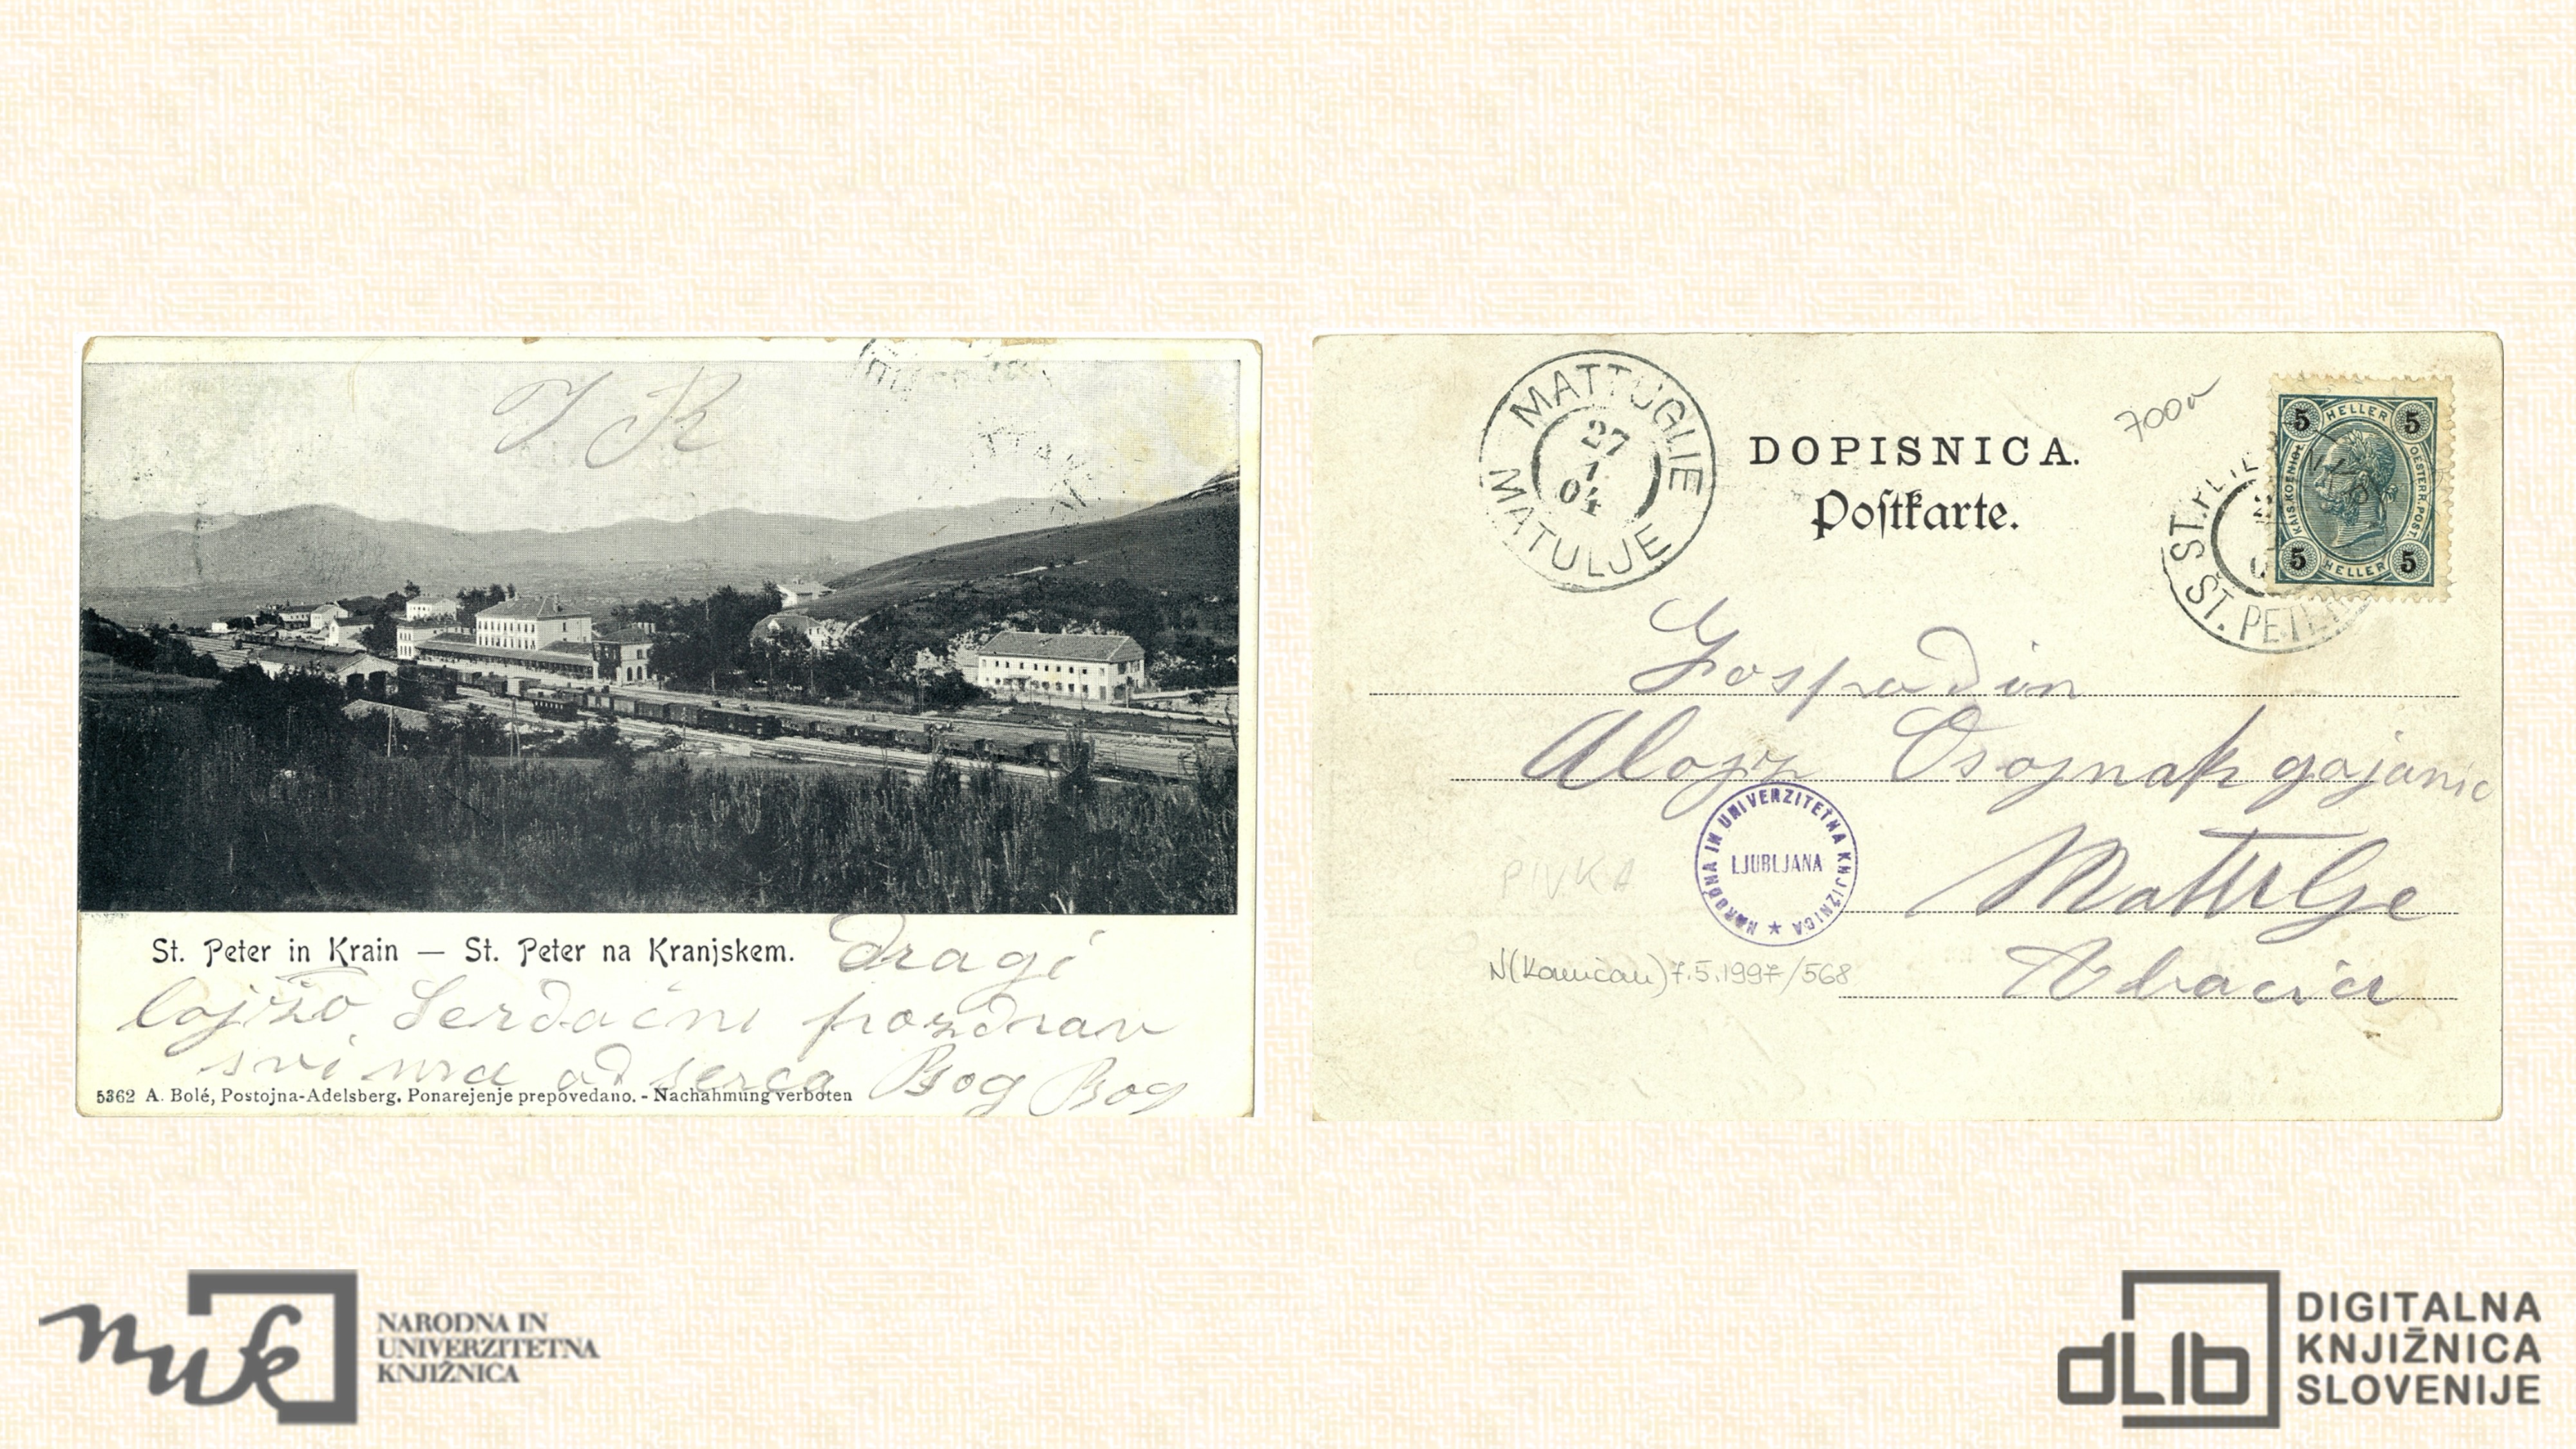 J K
St. Peter in Krain — St. Peter na Kranjskem.
Dragi
Lojžo Serdačni pozdrav
svima od serca Bog Bog
5362 A. Bolé, Postojna-Adelsberg. Ponarejenje prepovedano. - Nachahmung verboten
MATTUGLIE
27
1
04
MATULJE
DOPISNICA.
Postkarte.
700
5 HELLER 5
KAIS. KOENIGL. OESTERR. POST.
5 HELLER 5
ST. PETER
Gospodin
Alojz Osojnak
NARODNA IN UNIVERZITETNA KNJIŽNICA
LJUBLJANA
PIVKA
Mattulje
N(Kamičan) 7.5.1997/568
nuk
NARODNA IN
UNIVERZITETNA
KNJIŽNICA
dLib
DIGITALNA
KNJIŽNICA
SLOVENIJE